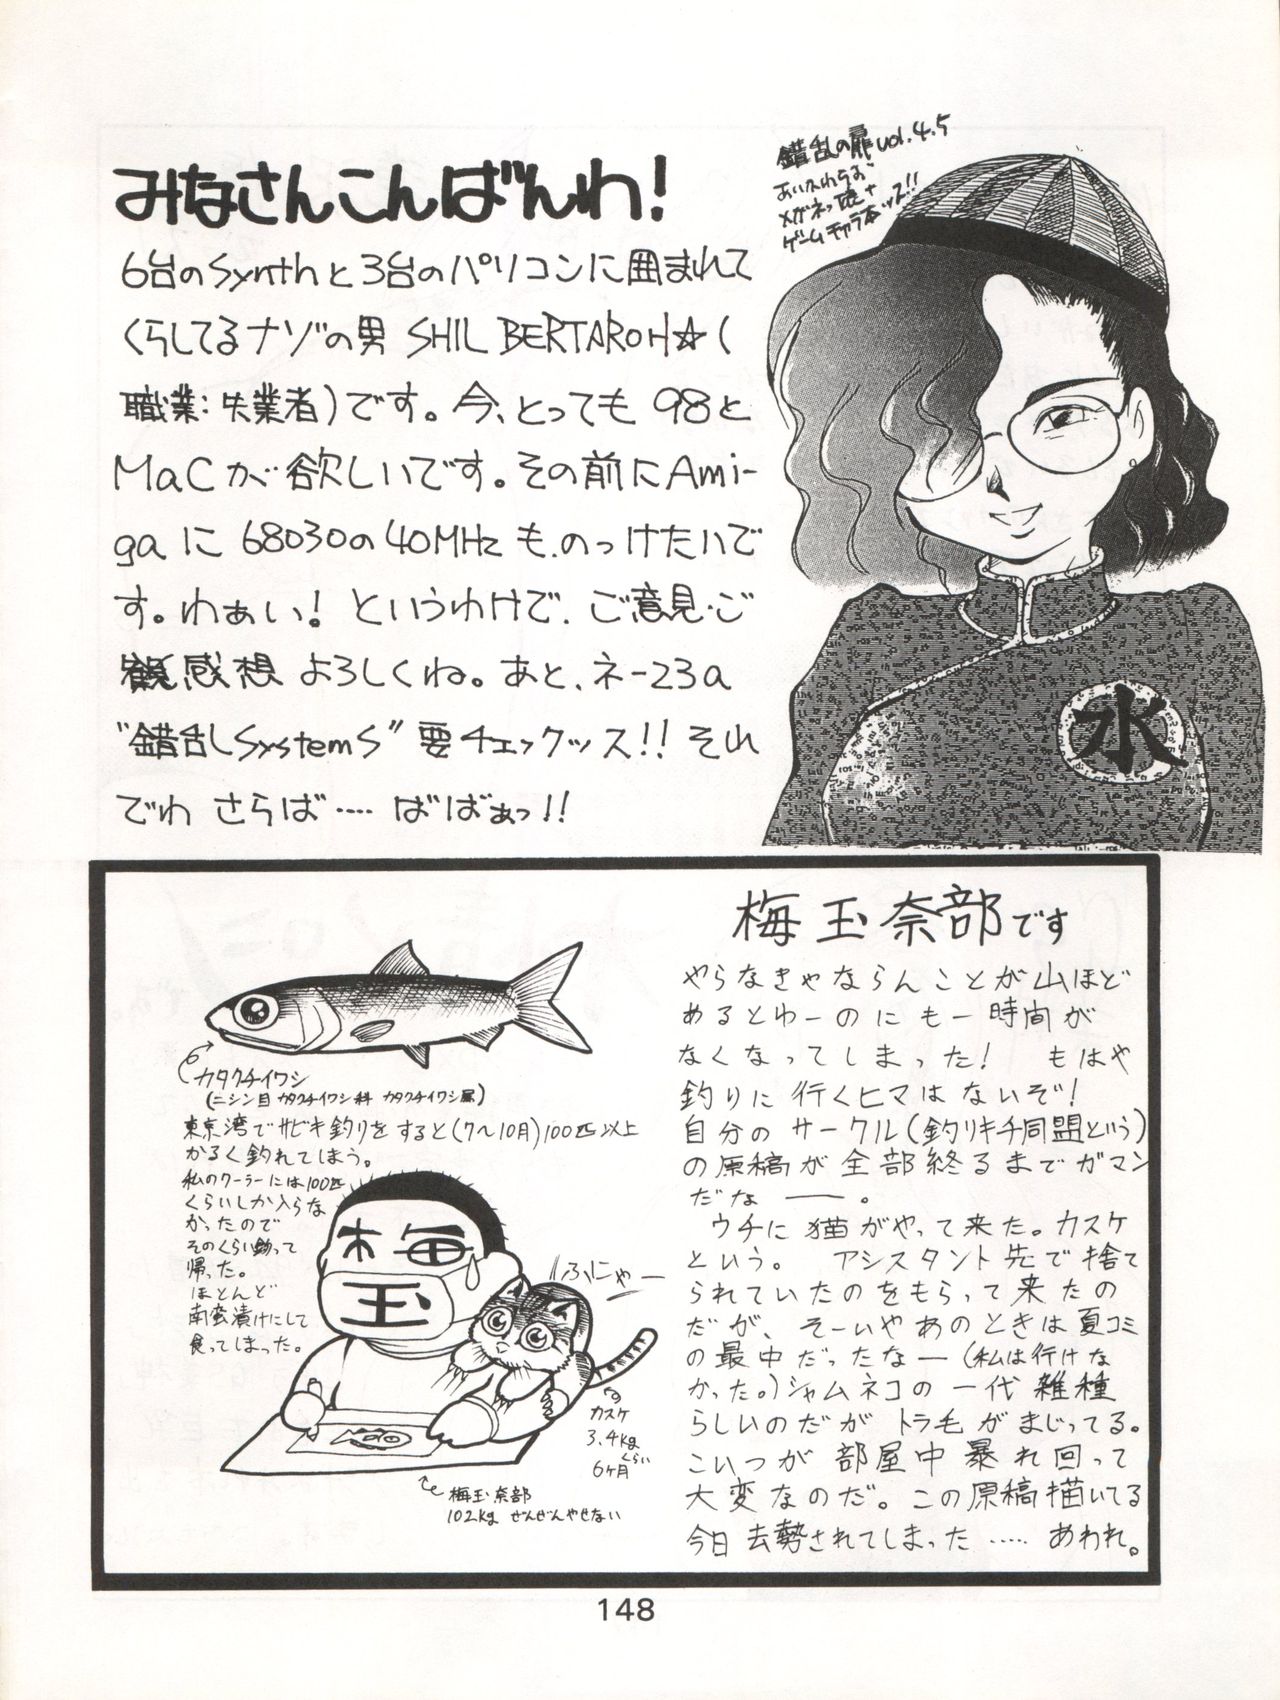 みなさんこんばんわ!
6台のSynthと3台のパソコンに囲まれて
くらしてるナゾの男 SHIL BERTAROH☆(
職業:失業者)です。今、とっても 98と
MaCが欲しいです。その前にAmi-
gaに 68030の40MHzも、のっけたいで
す。わぁい! というわけで、ご意見・ご
観感想 よろしくね。あと、ネ-23a
"錯乱SystemS"要チェックッス!! それ
でわ さらば…… ばばぁっ!!
錯乱の扉vol.4.5
メガネっ娘+
ゲームキャラ本ッス!!
水
梅玉奈部です
やらなきゃならんことが山ほど
あるとゆーのにも一時間が
なくなってしまった! もはや
釣りに行くヒマはないぞ!
自分のサークル(釣りキチ同盟という)
の原稿が全部終るまでガマン
だなー。
ウチに猫がやって来た。カスケ
という。 アシスタント先で捨て
られていたのをもらって来たの
だが、そーいやあのときは夏コミ
の最中だったなー(私は行けな
かった。)シャムネコの一代雑種
らしいのだがトラ毛がまじってる。
こいつが部屋中暴れ回って
大変なのだ。この原稿描いてる
今日去勢されてしまった…… あわれ。
カタクチイワシ
(ニシン目カタクチイワシ科 カタクチイワシ属)
東京湾でサビキ釣りをすると(7〜10月)100匹以上
かるく釣れてしまう。
私のクーラーには100匹
くらいしか入らな
かったので
そのくらい釣って
帰った。
ほとんど
南蛮漬けにして
食ってしまった。
梅
玉
ふにゃー
カスケ
3.4kg
くらい
6ヶ月
梅玉奈部
102kg ぜんぜんやせない
148